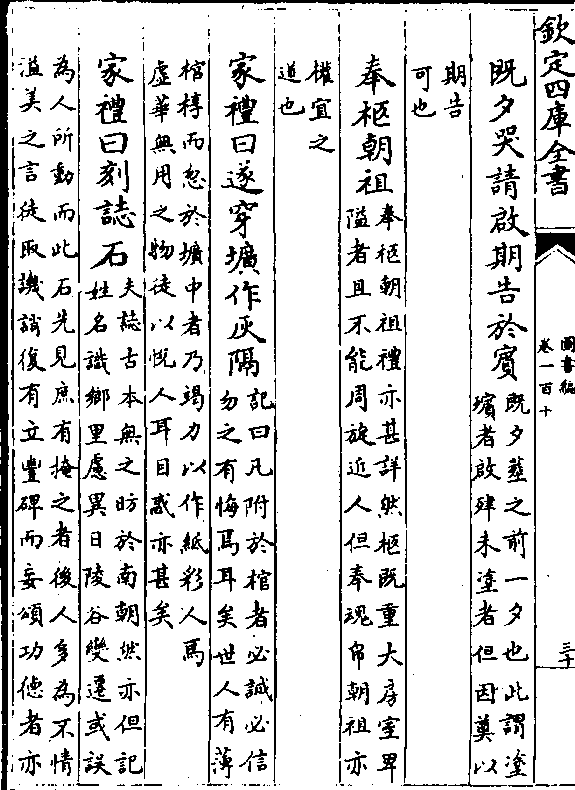 欽定四庫全書
圖書編
卷一百十
三十
既夕哭請啟期告於賓
既夕葬之前一夕也此謂塗
殯者啟肂未塗者但因奠以
期告
可也
奉柩朝祖
奉柩朝祖禮亦甚詳然柩既重大房室卑
隘者且不能周旋近人但奉魂帛朝祖亦
權宜之
道也
家禮曰遂穿壙作灰隔
記曰凡附於棺者必誠必信
勿之有悔焉耳矣世人有薄
棺椁而忽於壙中者乃竭力以作紙彩人馬
虛華無用之物徒以悅人耳目惑亦甚矣
家禮曰刻誌石
夫誌古本無之昉於南朝然亦但記
姓名識鄉里慮異日陵谷變遷或誤
為人所動而此石先見庶有掩之者後人多為不情
溢美之言徒取譏誚復有立豐碑而妄頌功德者亦